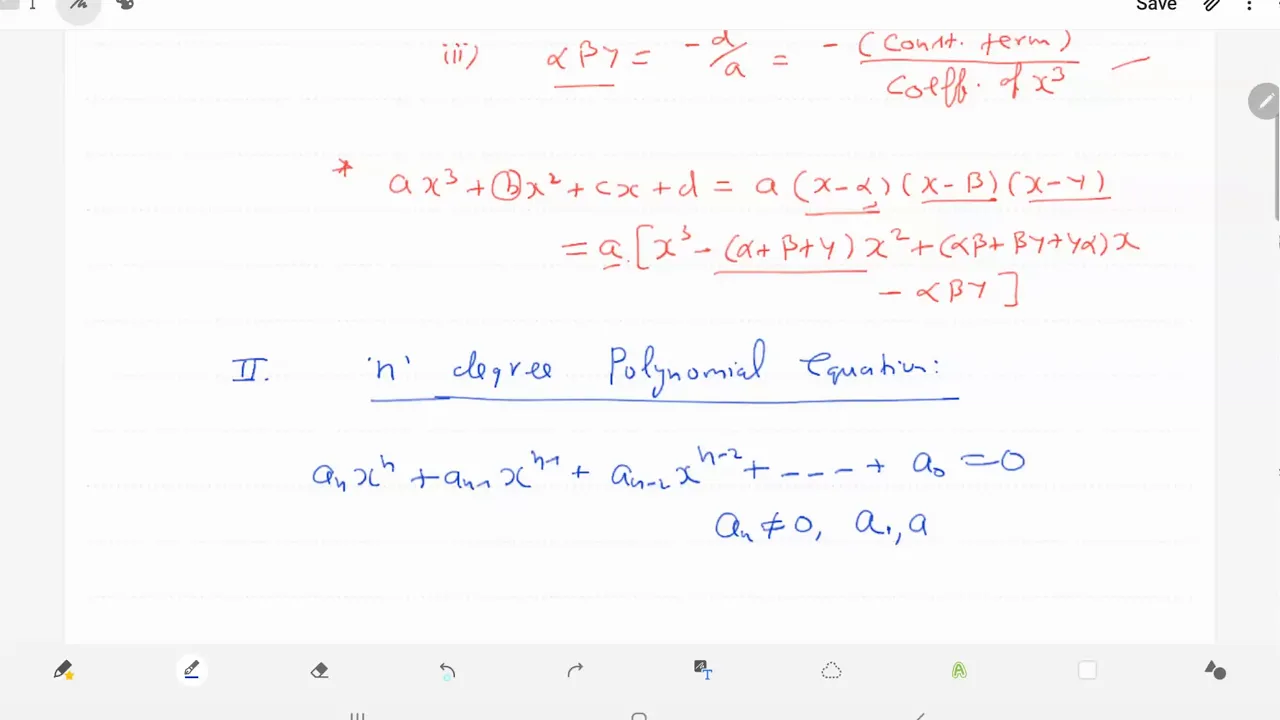 1 Save
iii) αβγ = -d/a = - (Const. term) / Coeff. of x³
* ax³ + bx² + cx + d = a (x-α) (x-β) (x-γ)
= a. [x³ - (α+β+γ) x² + (αβ+βγ+γα) x
- αβγ]
II. 'n' degree Polynomial Equation:
aₙxⁿ + aₙ₋₁xⁿ⁻¹ + aₙ₋₂xⁿ⁻² + ---- + a₀ = 0
aₙ ≠ 0, a₁, a
T A